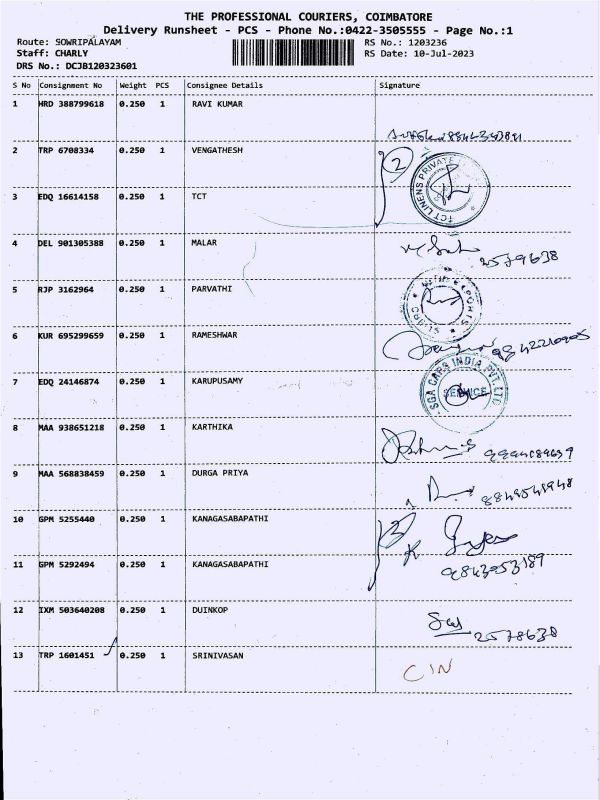 THE PROFESSIONAL COURIERS, COIMBATORE
Delivery Runsheet - PCS - Phone No.:0422-3505555 - Page No.:1
Route: SOWRIPALAYAM RS No.: 1203236
Staff: CHARLY RS Date: 10-Jul-2023
DRS No.: DCJB120323601
S No Consignment No Weight PCS Consignee Details Signature
1 HRD 388799618 0.250 1 RAVI KUMAR
2 TRP 6708334 0.250 1 VENGATHESH
2
3 EDQ 16614158 0.250 1 TCT
TCT LINENS PRIVATE
4 DEL 901305388 0.250 1 MALAR
2579638
5 RJP 3162964 0.250 1 PARVATHI
6 KUR 695299659 0.250 1 RAMESHWAR
7 EDQ 24146874 0.250 1 KARUPUSAMY
SGA CARS INDIA PVT. LTD
SERVICE
8 MAA 938651218 0.250 1 KARTHIKA
9 MAA 568838459 0.250 1 DURGA PRIYA
10 GPM 5255440 0.250 1 KANAGASABAPATHI
11 GPM 5292494 0.250 1 KANAGASABAPATHI
9843053189
12 IXM 503640208 0.250 1 DUINKOP
2578638
13 TRP 1601451 0.250 1 SRINIVASAN
CIN